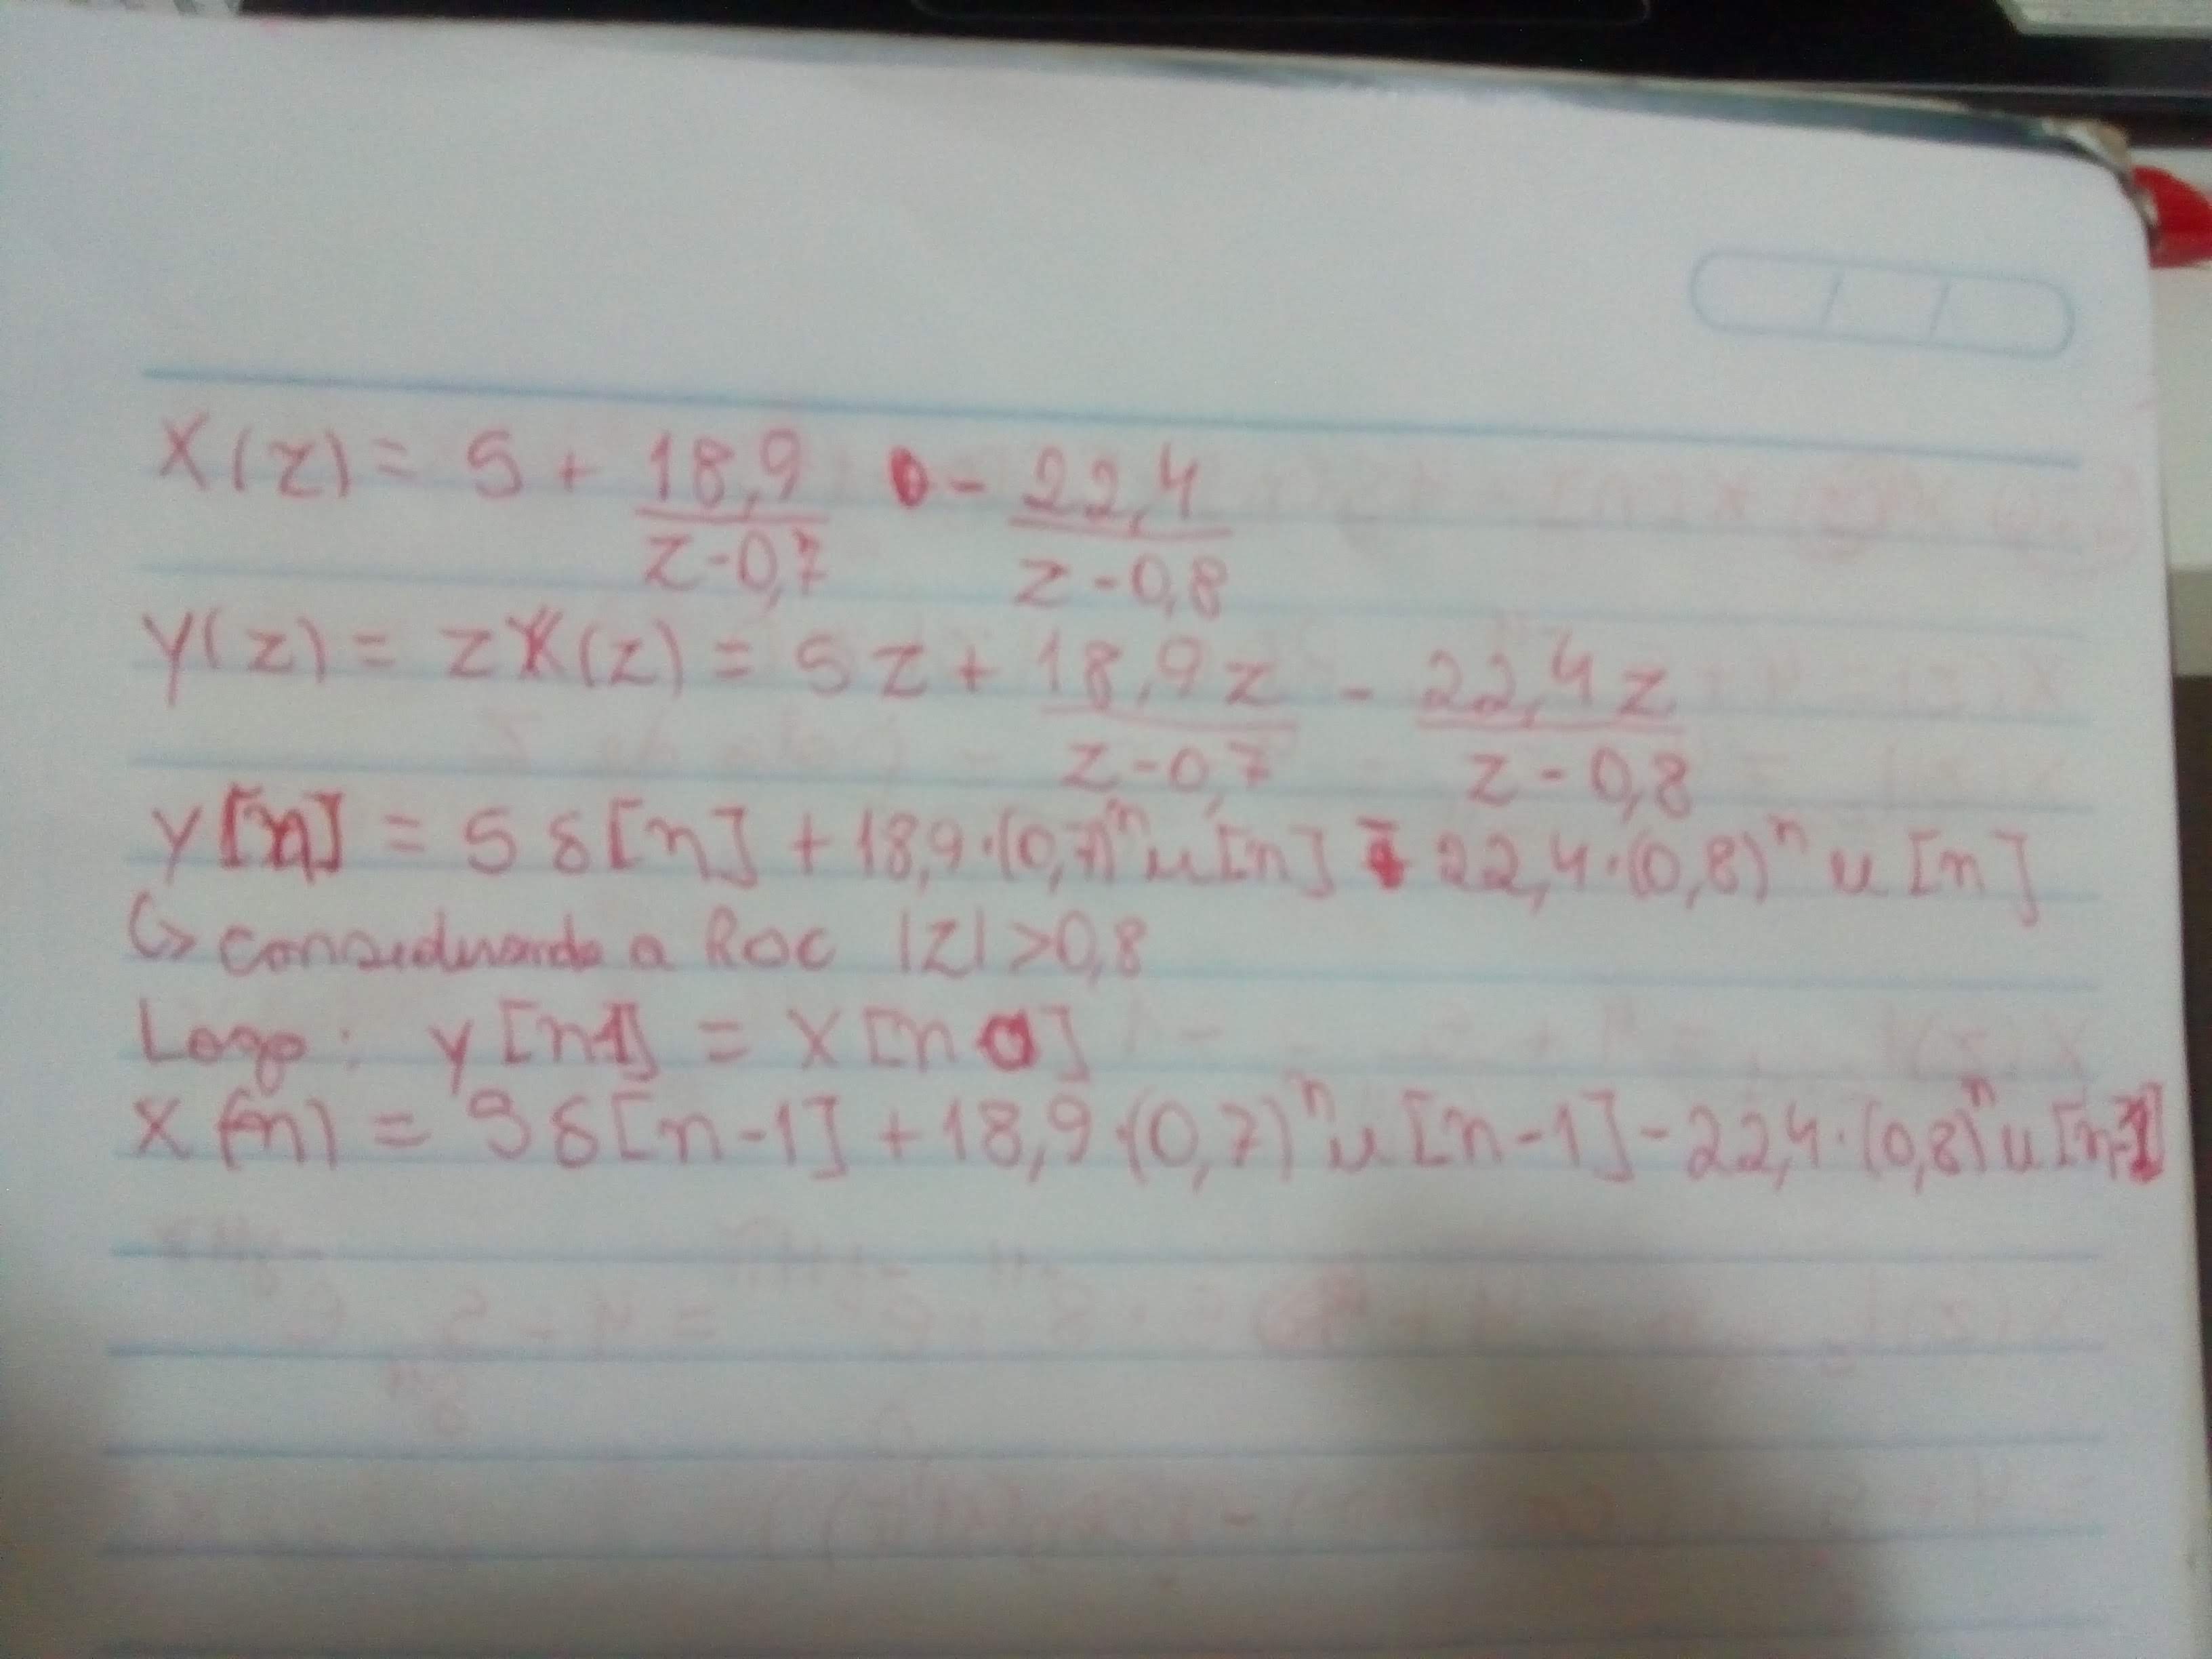 X(z) = 5 + 18,9/(z-0,7) - 22,4/(z-0,8)
Y(z) = zX(z) = 5z + 18,9z/(z-0,7) - 22,4z/(z-0,8)
y[n] = 5δ[n] + 18,9·(0,7)^n u[n] - 22,4·(0,8)^n u[n]
↳ considerando a Roc |z| >0,8
Logo: y[n-1] = x[n]
x(n) = 5δ[n-1] + 18,9·(0,7)^n u[n-1] - 22,4·(0,8)^n u[n-1]